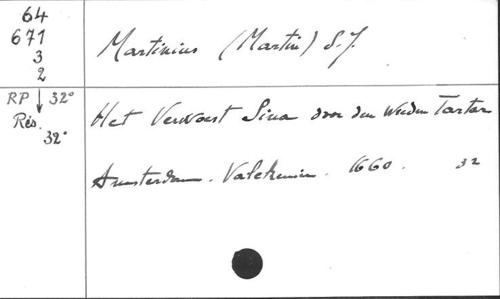 64
671
3
2
RP ↓ 32°
Rés. 32°
Martinius (Martin) S.J.
Het Verwoest Sina door den Wreeden Tarter
Amsterdam. Valckenier. 1660. 32